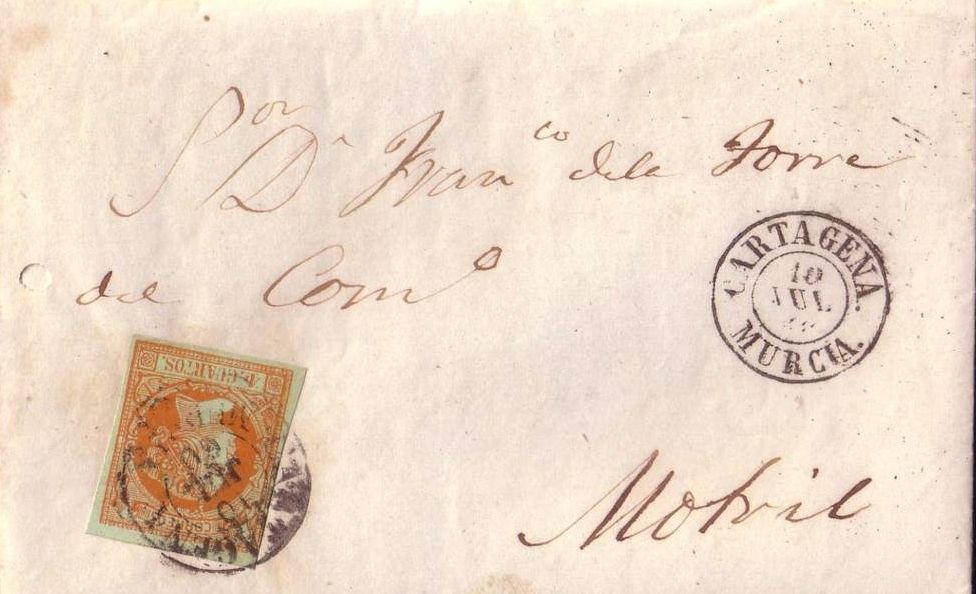 Sor Dn Franco dela Torre
del Como
CARTAGENA.
10
JUL
MURCIA.
4 CUARTOS.
CORREOS
Motril